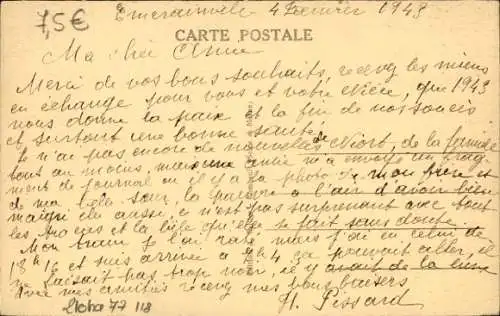 7,5€
Emerainville 4 Février 1943
CARTE POSTALE
Ma chère Anna
Merci de vos bons souhaits, recevez les miens
en échange pour vous et votre Nièce, que 1943
nous donne la paix et la fin de nos soucis
et surtout une bonne santé.
Je n'ai pas encore de nouvelles de Niort, de la famille
tout au moins, mais une amie m'a envoyé un frag
ment de journal où il y a la photo de mon frère et
de ma belle sœur, la pauvre a l'air d'avoir bien
maigri elle aussi, ce n'est pas surprenant avec tout
les tracas et la bile qu'elle se fait sans doute.
Mon train je l'ai raté mais j'ai eu celui de
18h 16 et suis arrivée à ça pouvait aller, il
ne faisait pas trop noir, il y avait de la lune
avec mes amitiés recevez mes bons baisers
H. Pissard
118